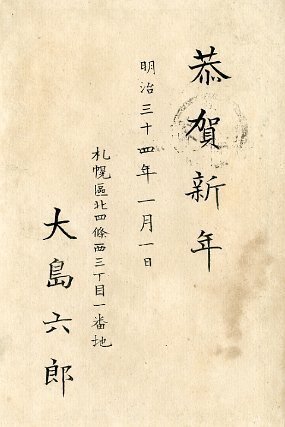 恭賀新年
明治三十四年一月一日
札幌區北四條西三丁目一番地
大島六郎